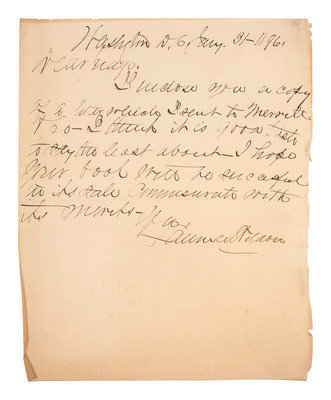 Washgton D, C, Jany. 31-1896.
Dear Majr.
I inclose you a copy
of a let which I sent to Merrill
& Co - I think it is good, to
to say the least about - I hope
your book will be sucessful
in its sale Commensurate with
its merits -